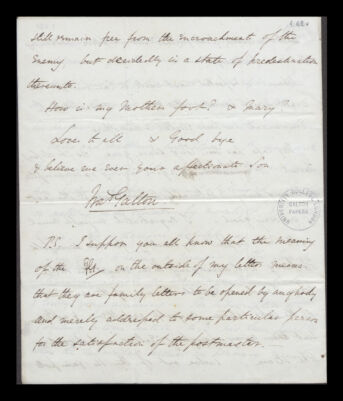 still remain free from the encroachment of the
Enemy but decidedly in a state of predestination
thereunto.
How is my Mothers foot? & Mary?
Love to all & Good bye
& believe me ever your affectionate Son
Fras Galton
PS. I suppose you all know that the meaning
of the on the outside of my letters means
that they are family letters to be opened by anybody
and merely addressed to some particular person
for the satisfaction of the postmaster.
GALTON
PAPERS